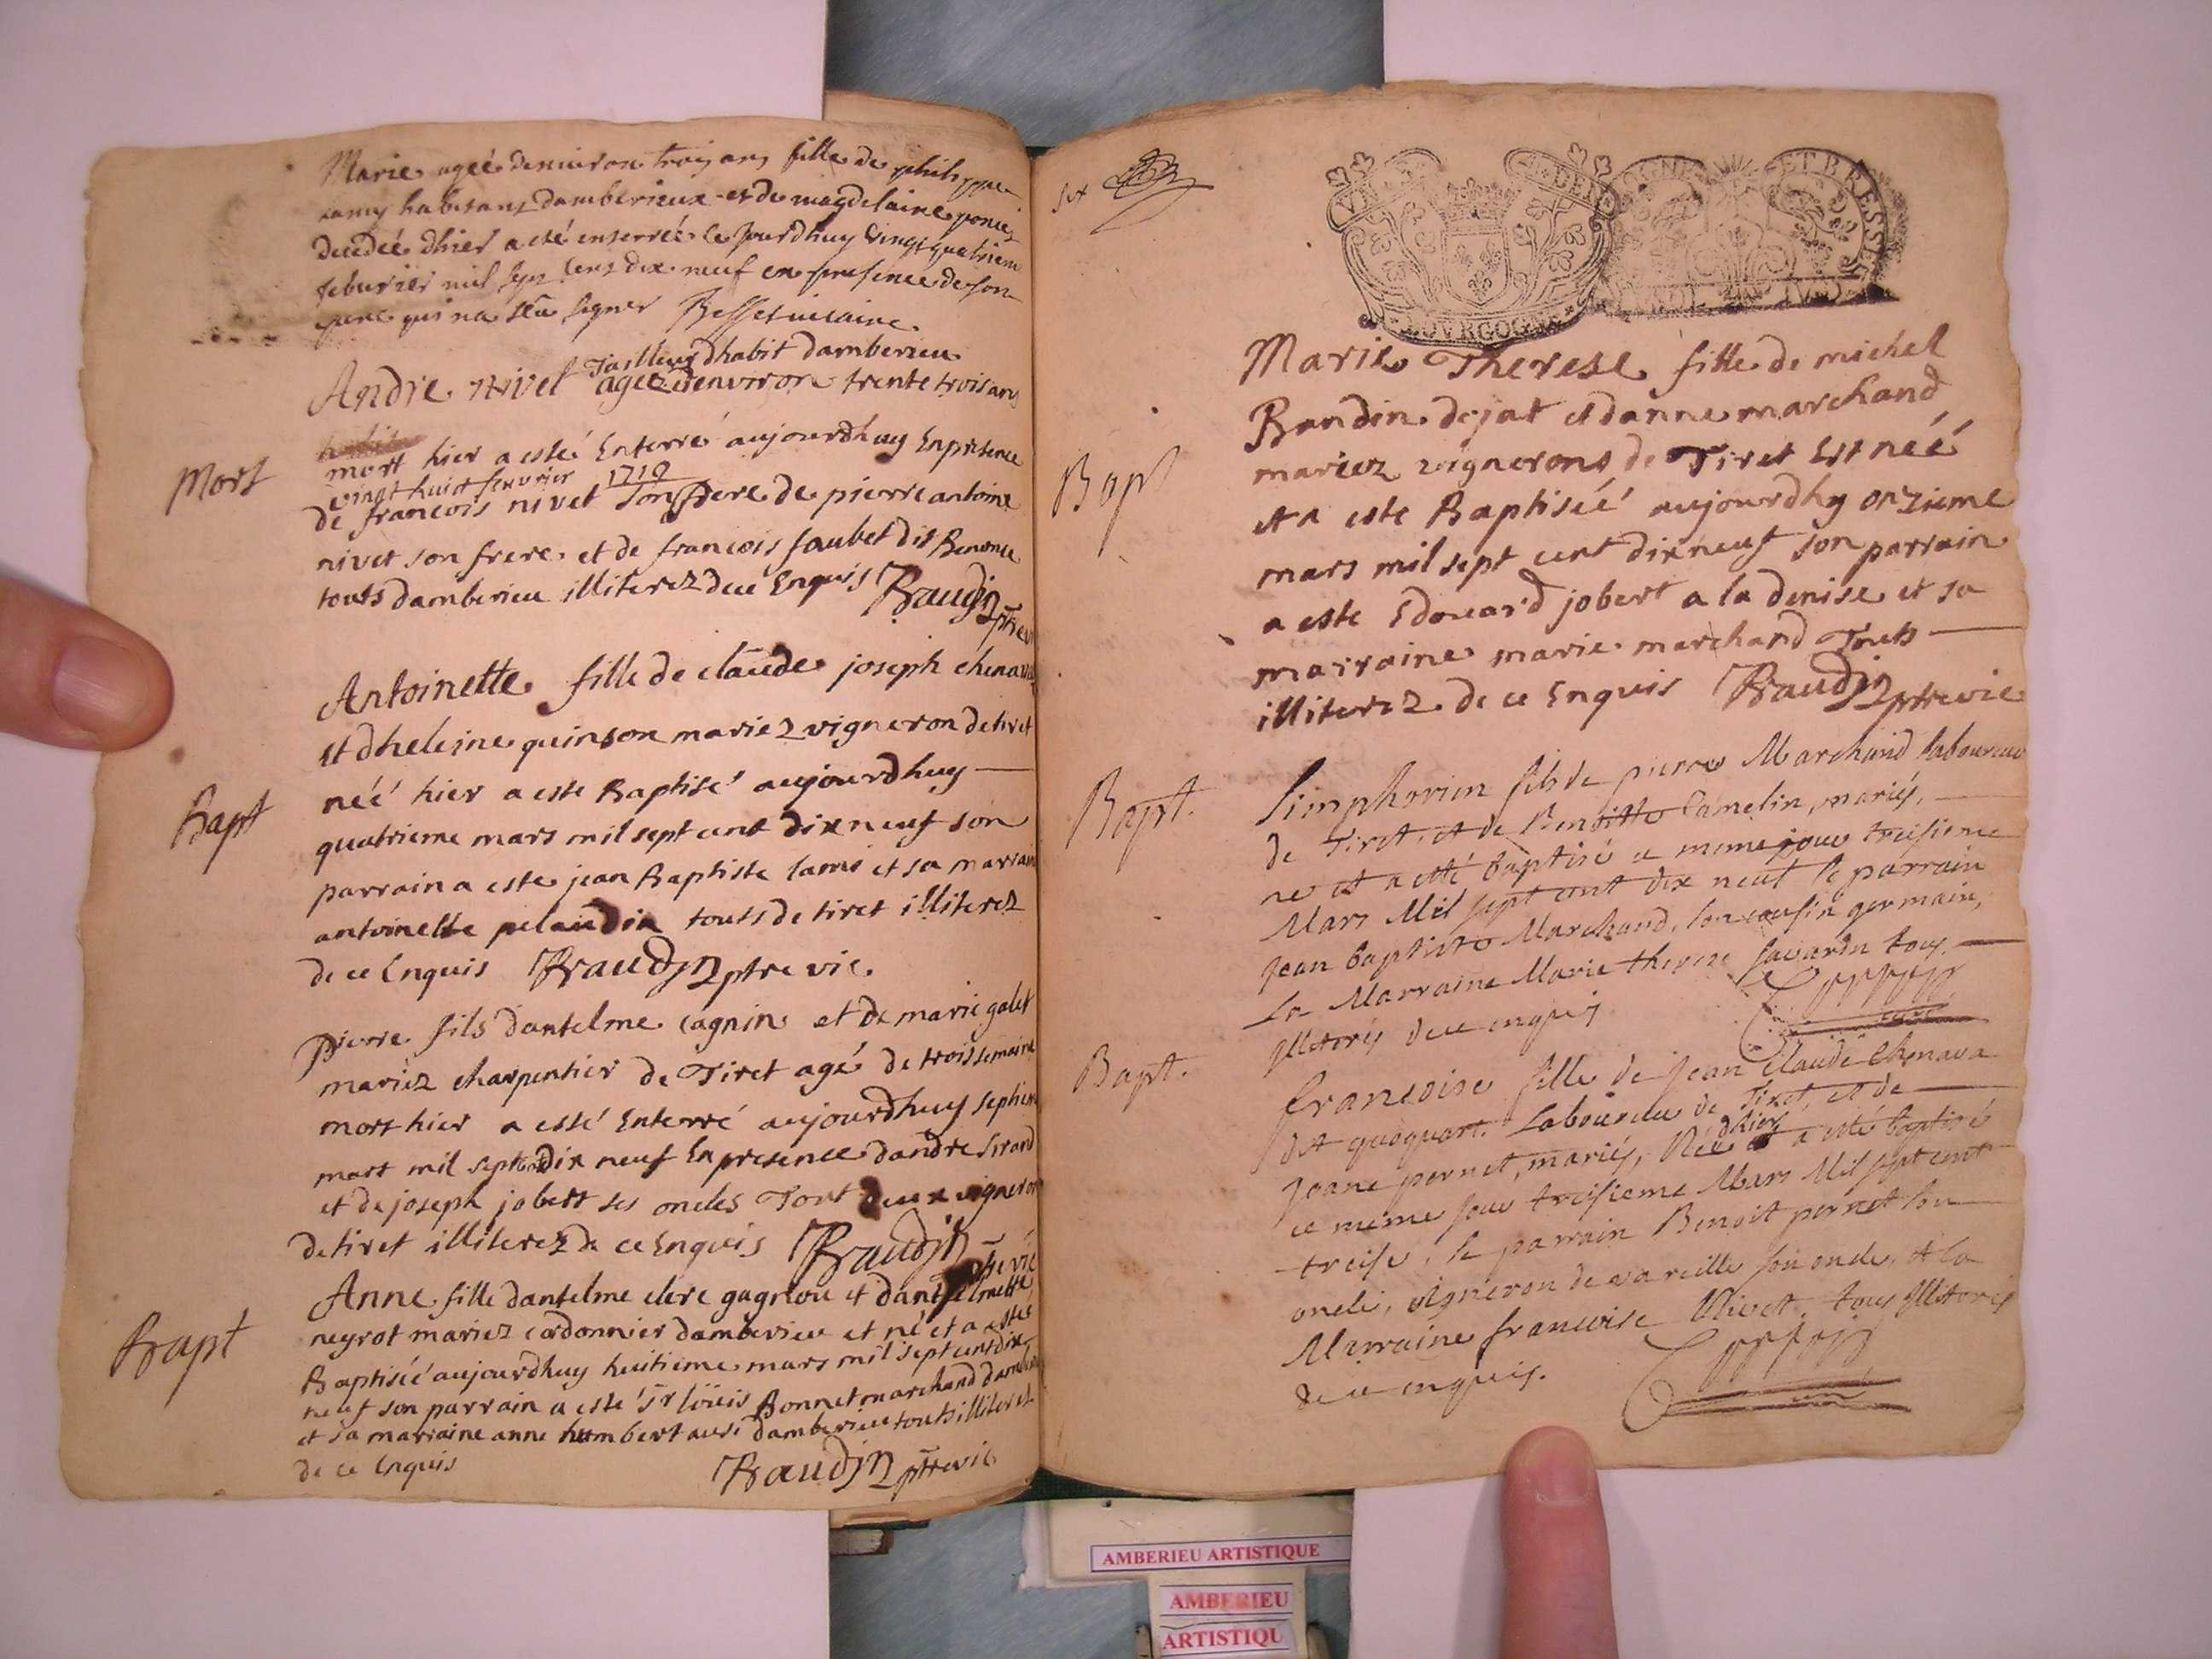 Marie ageé denuiron trois ans fille de philippe
ramy habitans damberieux et de magdelaine
decedeé dhier a esté enterreé ce jourdhuy vingt quatriem
feburier mil sept cens dix neuf en presence de son
pere qui na sceu signer Besset uicaire
Tailleur dhabit damberieu
Andre nivet agez denviron trente trois ans
Mort
mort hier a esté Enterré aujourdhuy Enpresence
vingt huict feuvrier 1719
de francois nivet son pere de pierre antoine
nivet son frere et de francois joubet dit
touts damberieu illiterez dece Enquis Baudin
ptre
Antoinette fille de claude joseph chenava
et dheleine quinson mariez vigneron detiret
Bapt
néé hier a este Baptisé aujourdhuy
quatrieme mars mil sept cent dix neuf son
parrain a este jean Baptiste lamé et sa marrain
antoinette pelaudin touts de tiret illiterez
de ce Enquis Baudin ptre vic.
pierre fils dantelme cagnin et de marie galet
mariez charpentier de Tiret agé de trois semaine
mort hier a esté Enterré aujourdhuy septiem
mars mil sept cent dix neuf En presence dandre sirand
et de joseph jobert ses oncles Tout deux vigneron
detiret illiterez de ce Enquis Baudin
ptre vic
Anne fille dantelme clerc gagniou et dantelmette
Bapt
neyrot mariez cordonnier damberieu et né et a este
Baptiséé aujourdhuy huitieme mars mil sept cent dix
neuf son parrain a esté sr löüis Bonnet marchand damberi
et sa marraine anne humbert ausi damberieu touts illiterez
de ce Enquis Baudin ptre vic
six
BOURGOGNE
ET BRESSE
Marie Therese fille de michel
Baudin dejat et danne marchand
Bapt
mariez vignerons de Tiret Est néé
et a este Baptiséé aujourdhy onzieme
mars mil sept cent dix neuf son parrain
a este Edouard jobert a la denise et sa
marraine marie marchand Touts
illiterez de ce Enquis Baudin ptre vic
Bapt.
Simphorien fils de pierre Marchand laboureur
de Tiret, et de Benoitte Camelin, mariés,
né et a esté baptisé ce meme jour treisieme
Mars Mil sept cent dix neuf le parrain
Jean baptiste Marchand, son cousin germain,
La Marraine Marie therese savarin tous
Illiterés dece enquis
curé
Bapt.
françoise fille de Jean Claude Chenava
dit quoquart Laboureur de Tiret, et de
Jeane pernet, mariés, Née dhier a esté baptisé
ce meme jour treisieme Mars Mil sept cent
treise, le parrain Benoit pernet son
oncle, vigneron de vareille son oncle, et la
Marraine francoise Nivet, tous Illiterés
de ce enquis.
AMBERIEU ARTISTIQUE
AMBERIEU
ARTISTIQU